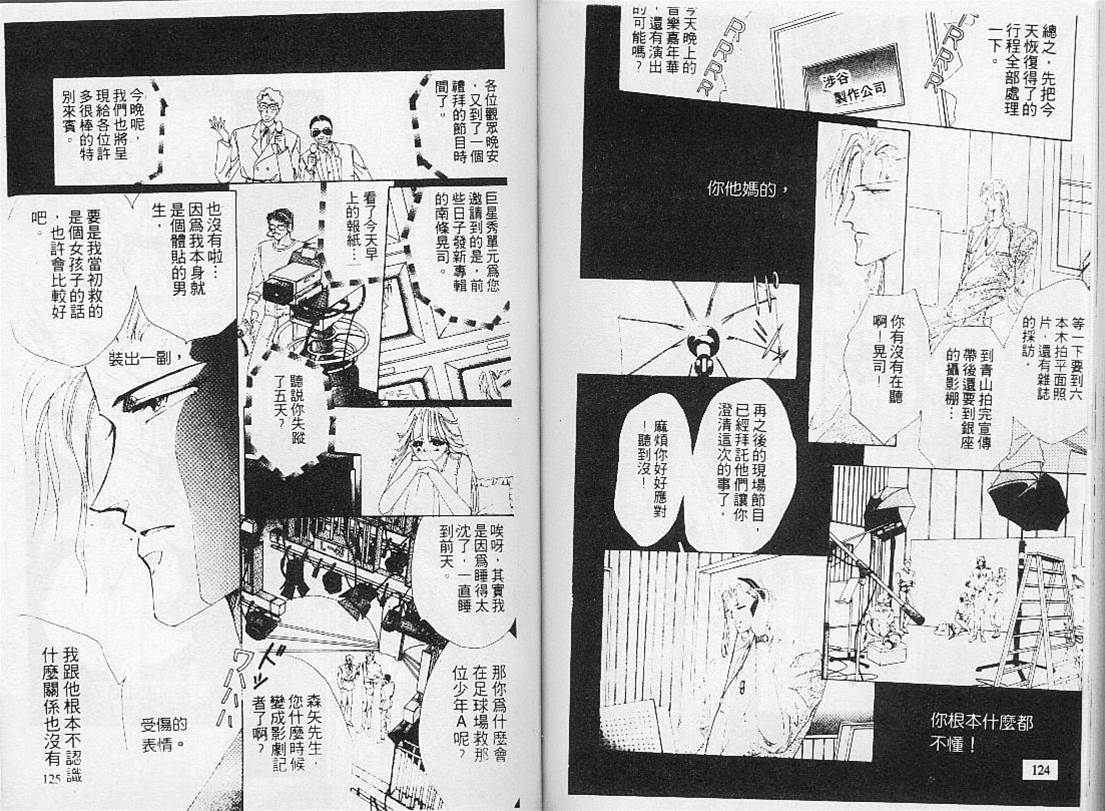 總之，先把今
天恢復得了的
行程全部處理
一下。
RRRR
RRRR
涉谷
製作公司
今天晚上的
音樂嘉年華
，還有演出
的可能嗎？
你他媽的，
等一下要到六
本木拍平面照
片，還有雜誌
的採訪．
到青山拍完宣傳
帶後還要到銀座
的攝影棚…
你有沒有在聽
啊！晃司！
再之後的現場節目，
已經拜託他們讓你
澄清這次的事了．
麻煩你好好應對
！聽到沒！
你根本什麼都
不懂！
124
各位觀眾晚安
，又到了一個
禮拜的節目時
間了。
今晚呢，
我們也將呈
現給各位許
多很棒的特
別來賓。
巨星秀單元為您
邀請到的是，前
些日子發新專輯
的南條晃司。
看了今天早
上的報紙…
聽說你失蹤
了五天？
唉呀，其實我
是因為睡得太
沈了，一直睡
到前天。
那你為什麼會
在足球場救那
位少年A呢？
森矢先生，
您什麼時候
變成影劇記
者了啊？
ドッ
ワハハハ
也沒有啦…
因為我本身就
是個體貼的男
生．
要是我當初救的
是個女孩子的話
，也許會比較好
吧。
裝出一副，
受傷的
表情。
我跟他根本不認識
什麼關係也沒有
125